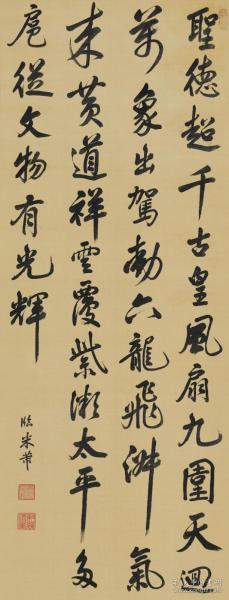 聖德超千古皇風扇九圍天迴
萬象出駕動六龍飛淑氣
來黃道祥雲覆紫微太平多
扈從文物有光輝
臨米芾